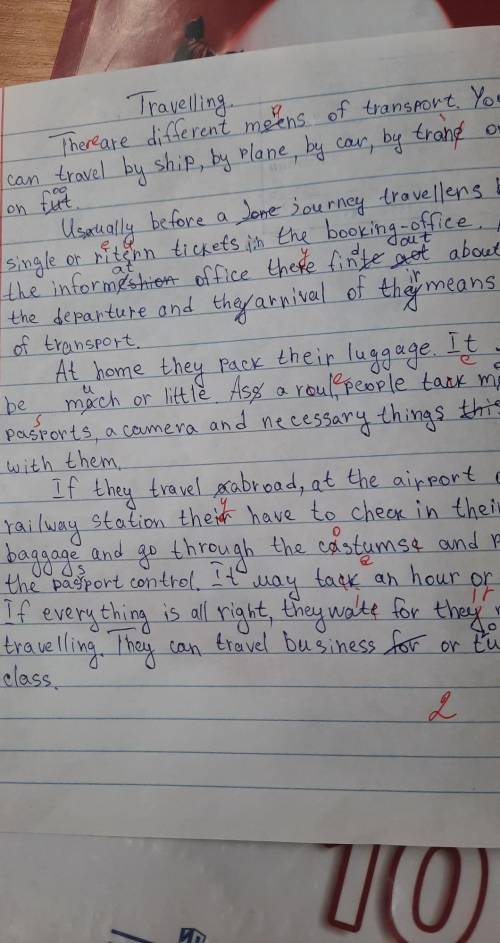 Travelling.
There are different means of transport. You
can travel by ship, by plane, by car, by train or
on foot.
Usually before a journey travellers b
single or return tickets in the booking-office.
the information office they find out about
the departure and the arrival of their means
of transport.
At home they pack their luggage. It
be much or little. As a roul, people take
passports, a camera and necessary things
with them.
If they travel abroad, at the airport
railway station they have to check in their
baggage and go through the customs and
the passport control. It may take an hour or
If everything is all right, they wait for their
travelling. They can travel business or
class.
2
10